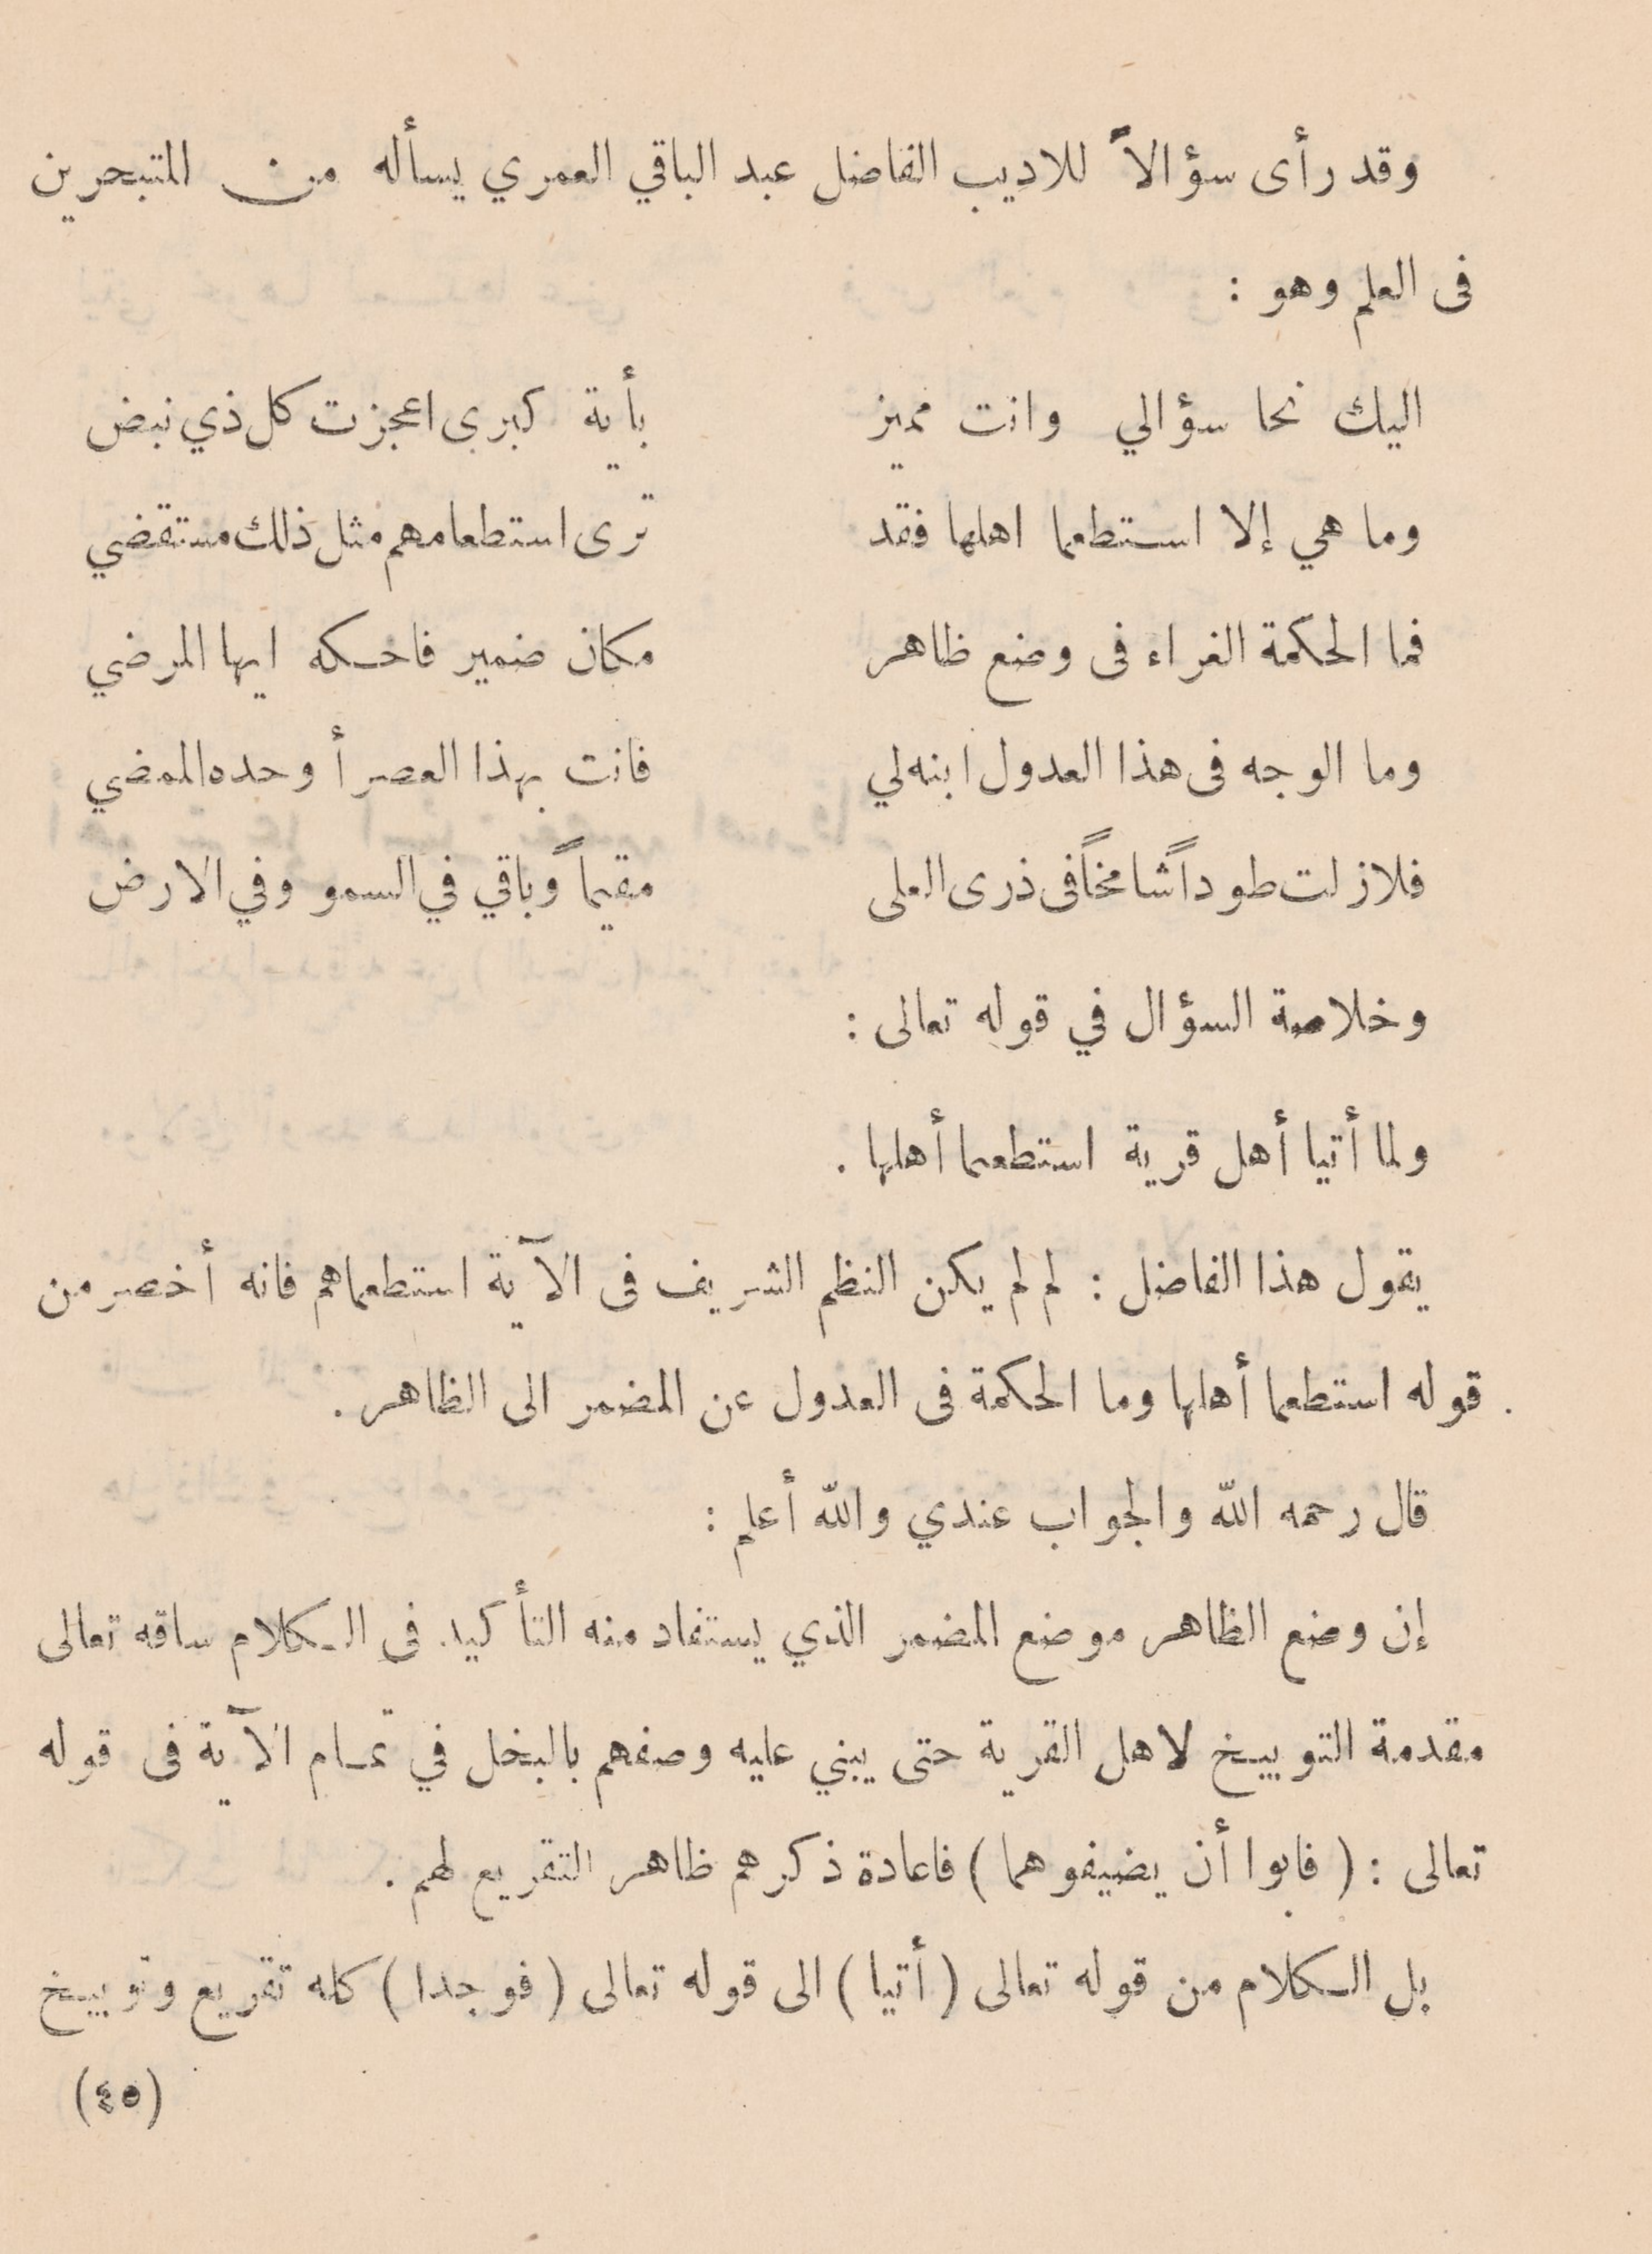 وقد رأى سؤالاً للاديب الفاضل عبد الباقي العمري يسأله من المتبحرين
فى العلم وهو :
اليك نحا سؤالي وانت مميز بأية كبرى اعجزت كل ذي نبض
وما هي إلا استطعما اهلها فقد ترى استطعامهم مثل ذلك مستقضي
فما الحكمة الغراء فى وضع ظاهر مكان ضمير فاحكه ايها المرضي
وما الوجه فى هذا العدول ابنه لي فانت بهذا العصر أوحده الممضي
فلازلت طوداً شامخاً فى ذرى العلى مقيماً وباقي في السمو وفي الارض
وخلاصة السؤال في قوله تعالى :
ولما أتيا أهل قرية استطعما أهلها .
يقول هذا الفاضل : لم لم يكن النظم الشريف فى الآية استطعماهم فانه أخصر من
قوله استطعما أهلها وما الحكمة فى العدول عن المضمر الى الظاهر .
قال رحمه الله والجواب عندي والله أعلم :
إن وضع الظاهر موضع المضمر الذي يستفاد منه التأكيد فى الكلام ساقه تعالى
مقدمة التوبيخ لاهل القرية حتى يبني عليه وصفهم بالبخل في تمام الآية فى قوله
تعالى : ( فابوا أن يضيفوهما ) فاعادة ذكرهم ظاهر التقريع لهم .
بل الكلام من قوله تعالى ( أتيا ) الى قوله تعالى ( فوجدا ) كله تقريع وتوبيخ
(٤٥)